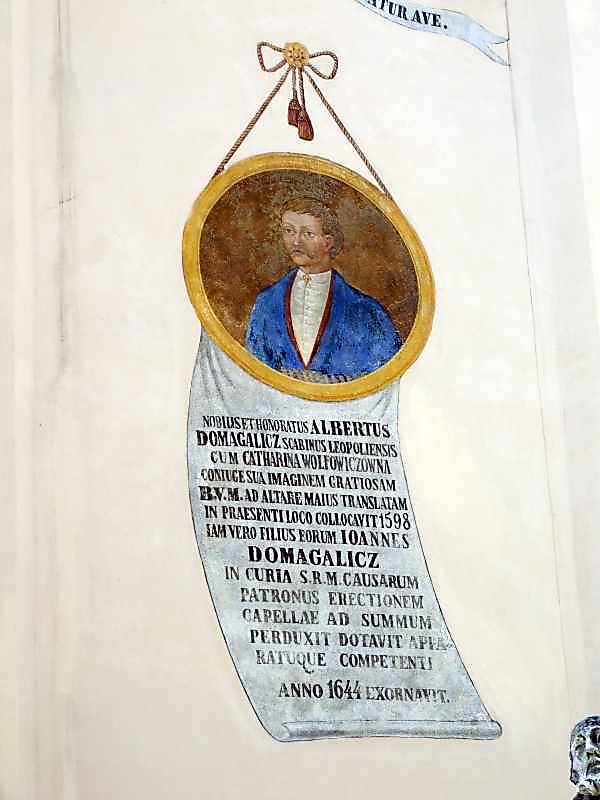 ATUR AVE.
NOBILIS ET HONORATUS ALBERTUS
DOMAGALICZ SCABINUS LEOPOLIENSIS
CUM CATHARINA WOLFOWICZOWNA
CONIUGE SUA IMAGINEM GRATIOSAM
B.V.M. AD ALTARE MAIUS TRANSLATAM
IN PRAESENTI LOCO COLLOCAVIT 1598
IAM VERO FILIUS EORUM IOANNES
DOMAGALICZ
IN CURIA S.R.M. CAUSARUM
PATRONUS ERECTIONEM
CAPELLAE AD SUMMUM
PERDUXIT DOTAVIT APPA-
RATUQUE COMPETENTI
ANNO 1644 EXORNAVIT.